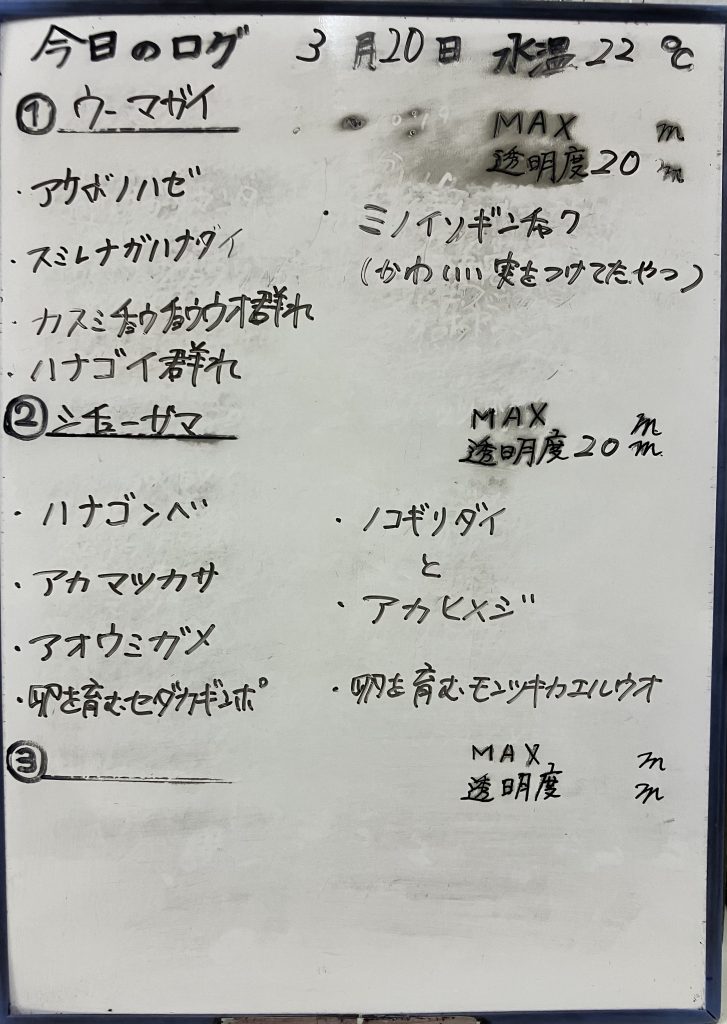 今日のログ 3月20日 水温22℃
① ウーマガイ
MAX m
透明度20m
・アケボノハゼ
・スミレナガハナダイ
・カスミチョウチョウウオ群れ
・ハナゴイ群れ
・ミノイソギンチャク
(かわいい実をつけてたやつ)
② シチューザマ
MAX m
透明度20m
・ハナゴンベ
・アカマツカサ
・アオウミガメ
・卵を育むセダカギンポ
・ノコギリダイ
と
・アカヒメジ
・卵を育むモンツキカエルウオ
③
MAX m
透明度 m